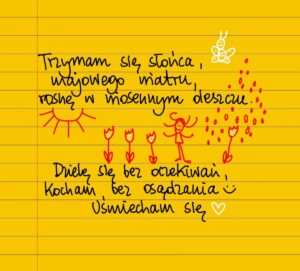 Trzymam się słońca,
majowego wiatru,
rosnę w wiosennym deszczu.
Dzielę się bez oczekiwań,
Kocham bez osądzania
Uśmiecham się